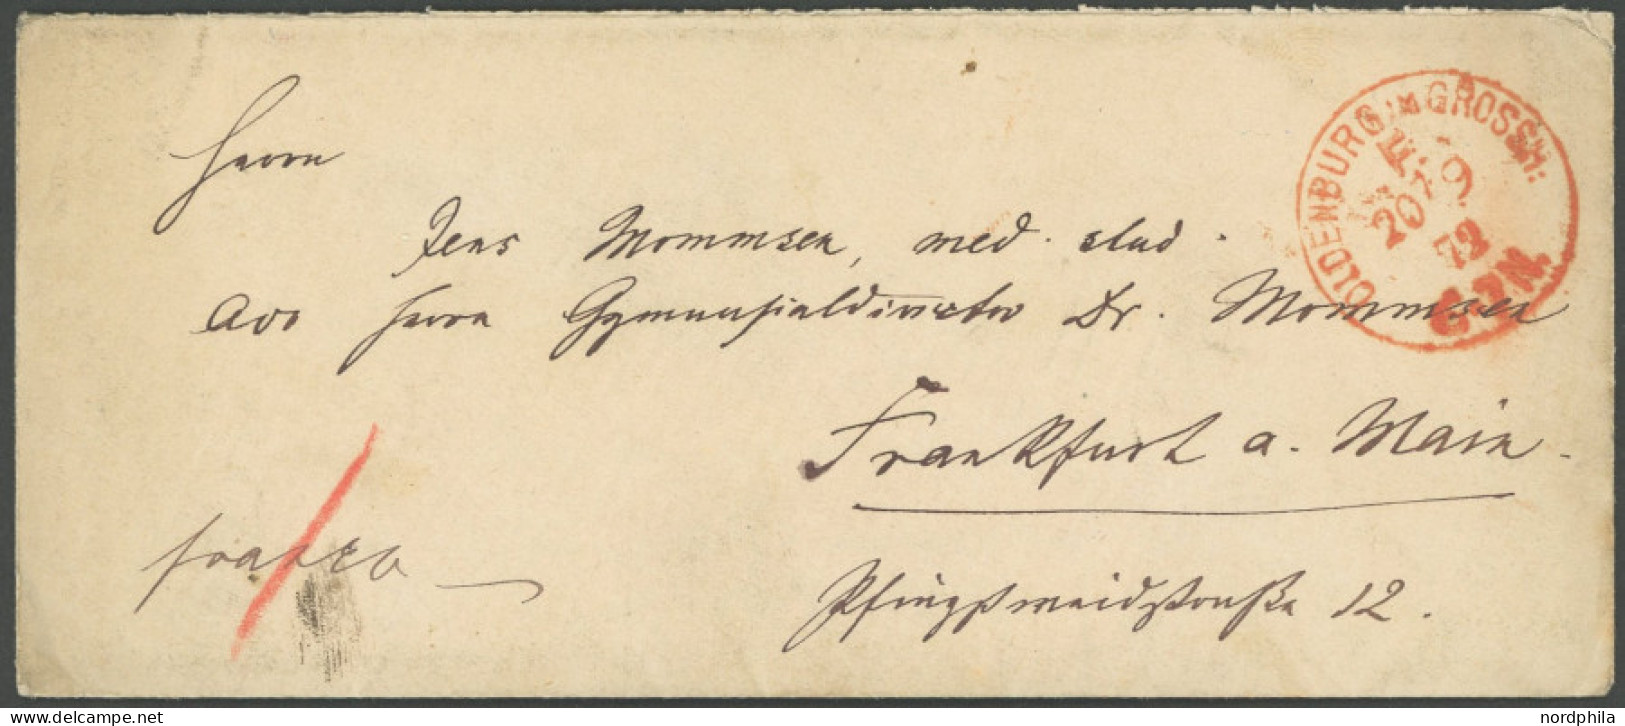 Herrn
Jens Mommsen, med. stud.
Herrn Gymnasialdirektor Dr. Mommsen
Frankfurt a. Main.
franco
Pfingstweidstraße 12.
OLDENBURG IM GROSSH:
20 9
72
www.delcampe.net
nordphila